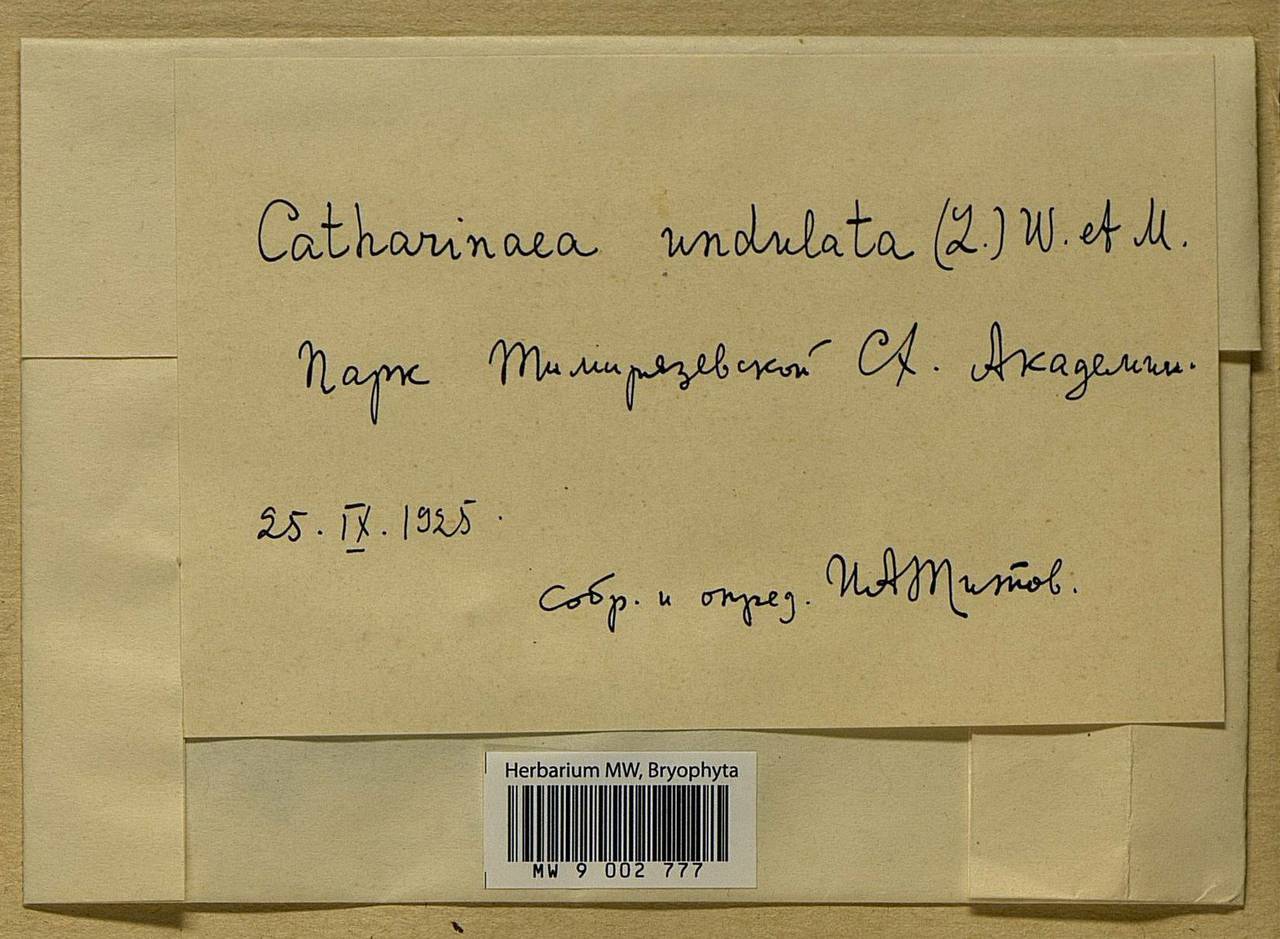 Catharinaea undulata (L.) W. et M.
Парк Тимирязевской СХ. Академии.
25. IX. 1925.
собр. и опред. И А Титов.
Herbarium MW, Bryophyta
MW 9 002 777